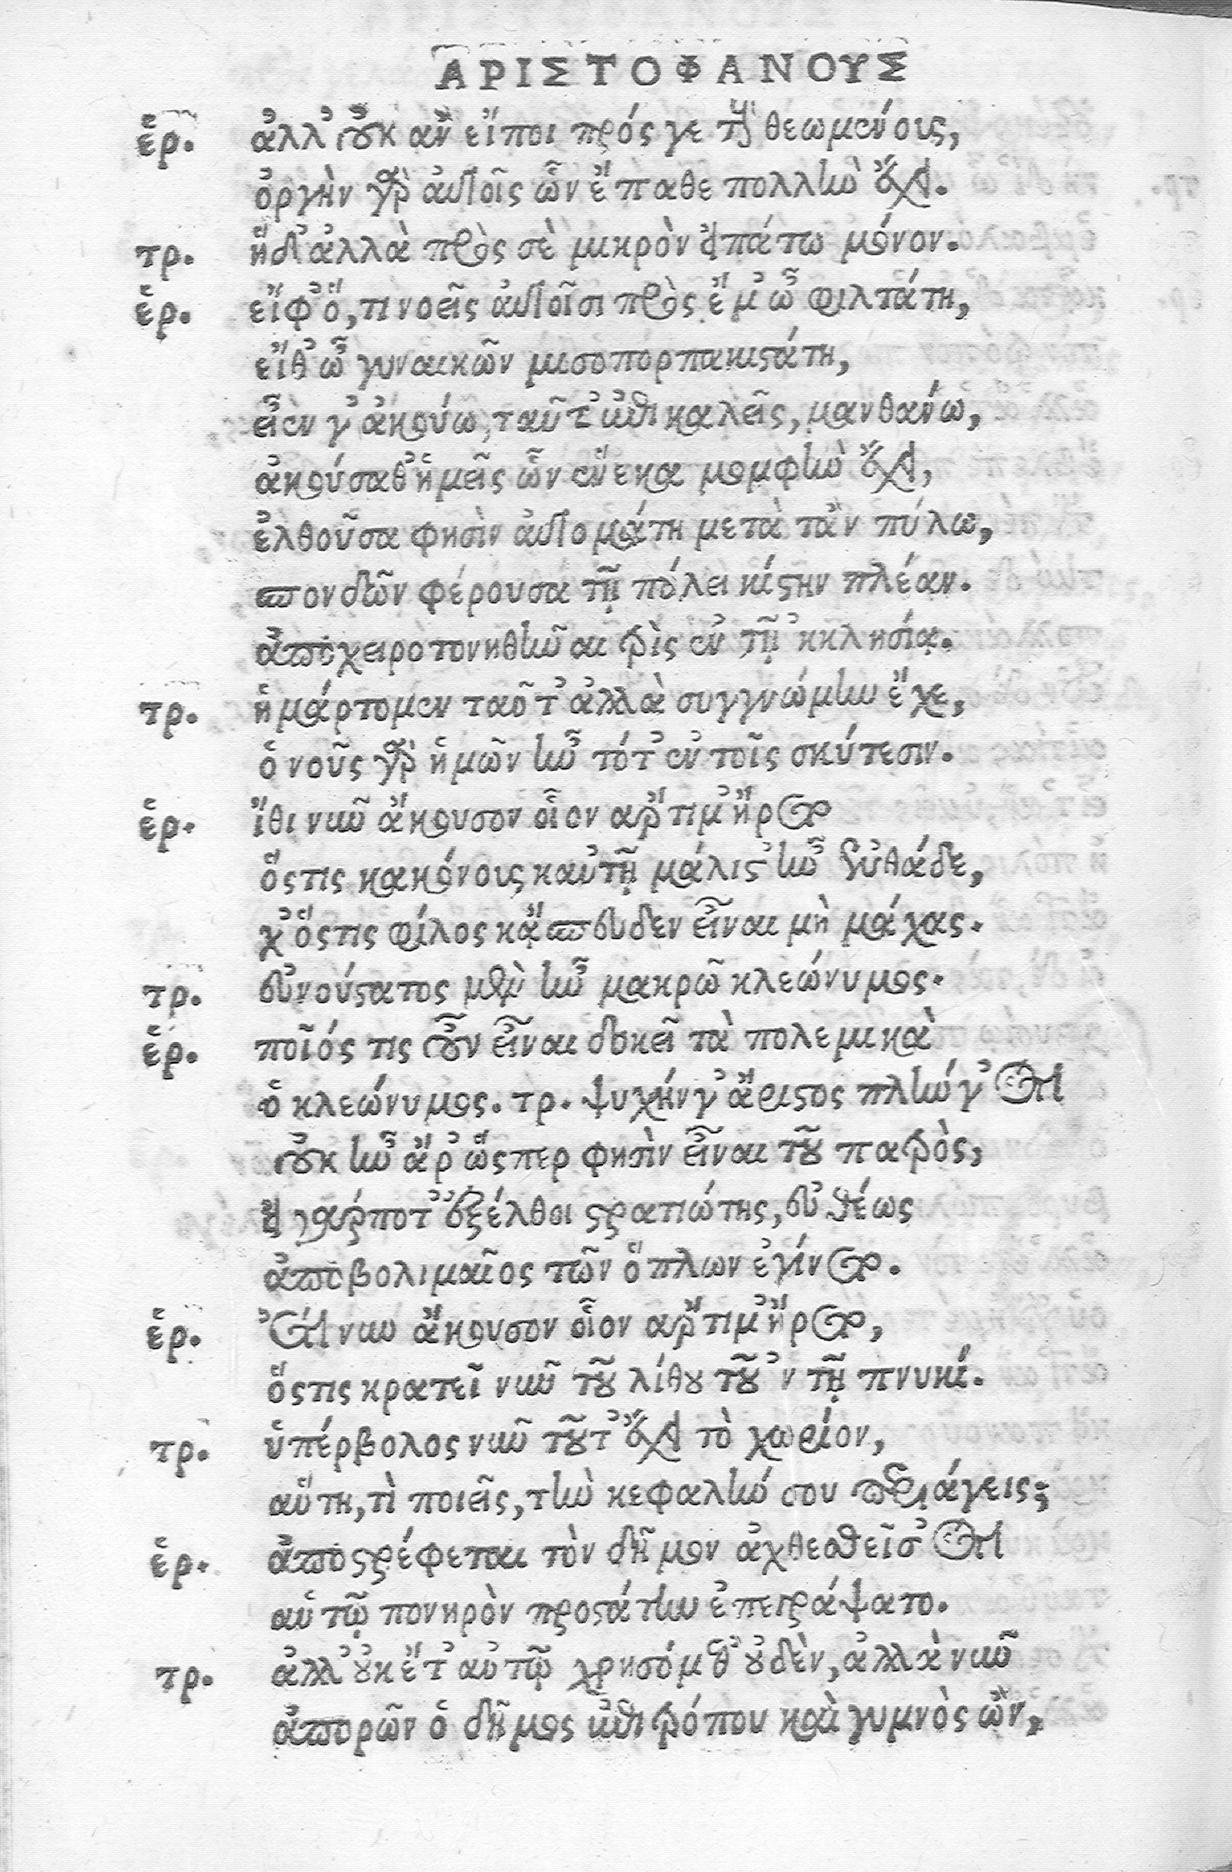 ΑΡΙΣΤΟΦΑΝΟΥΣ
ἑρ. ἀλλ' οὐκ ἂν εἴποι πρός γε τοὺς θεωμένους,
ὀργὴν γὰρ αὐτοῖς ὧν ἔπαθε πολλὴν ἔχει.
τρ. ἥδ' ἀλλὰ πρὸς σὲ μικρὸν εἰπάτω μόνον.
ἑρ. εἴφ' ὅ,τι νοεῖς αὐτοῖσι πρὸς ἔμ' ὦ φιλτάτη,
εἴθ' ὦ γυναικῶν μισοπορπακιστάτη,
εἶεν γ' ἀκούω, ταῦτ' ἐπικαλεῖς, μανθάνω,
ἀκούσαθ' ἡμεῖς ὧν ἕνεκα μομφὴν ἔχει,
ἐλθοῦσα φησὶν αὐτομάτη μετὰ τἀν πύλω,
σπονδῶν φέρουσα τῇ πόλει κίστην πλέαν.
ἀποχειροτονηθῆναι τρὶς ἐν τῇ 'κκλησίᾳ.
τρ. ἡμάρτομεν ταῦτ' ἀλλὰ συγγνώμην ἔχε,
ὁ νοῦς γὰρ ἡμῶν ἦν τότ' ἐν τοῖς σκύτεσιν.
ἑρ. ἴθι νῦν ἄκουσον οἷον ἄρτι μ' ἤρετο
ὅστις κακόνους καὐτῇ μάλιστ' ἦν ἐνθάδε,
χ' ὅστις φίλος κἄσπευδεν εἶναι μὴ μάχας.
τρ. εὐνούστατος μὲν ἦν μακρῶ κλεώνυμος.
ἑρ. ποῖός τις οὖν εἶναι δοκεῖ τὰ πολεμικὰ
ὁ κλεώνυμος. τρ. ψυχήν γ' ἄριστος πλήν γ' ὅτι
οὐκ ἦν ἄρ' ὥσπερ φησὶν εἶναι τοῦ πατρὸς,
εἰ γάρ ποτ' ἐξέλθοι στρατιώτης, εὐθέως
ἀποβολιμαῖος τῶν ὅπλων ἐγίνετο.
ἑρ. ἔτι νῦν ἄκουσον οἷον ἄρτι μ' ἤρετο,
ὅστις κρατεῖ νῦν τοῦ λίθου τοῦ 'ν τῇ πνυκί.
τρ. ὑπέρβολος νῦν τοῦτ' ἔχει τὸ χωρίον,
αὕτη, τὶ ποιεῖς, τὴν κεφαλήν σου περιάγεις;
ἑρ. ἀποστρέφεται τὸν δῆμον ἀχθεσθεῖσ' ὅτι
αὑτῷ πονηρὸν προστάτην ἐπεγράψατο.
τρ. ἀλλ' οὐκ ἔτ' αὐτῷ χρησόμεθ' οὐδὲν, ἀλλὰ νῦν
ἀπορῶν ὁ δῆμος ἐπιτρόπου καὶ γυμνὸς ὢν,